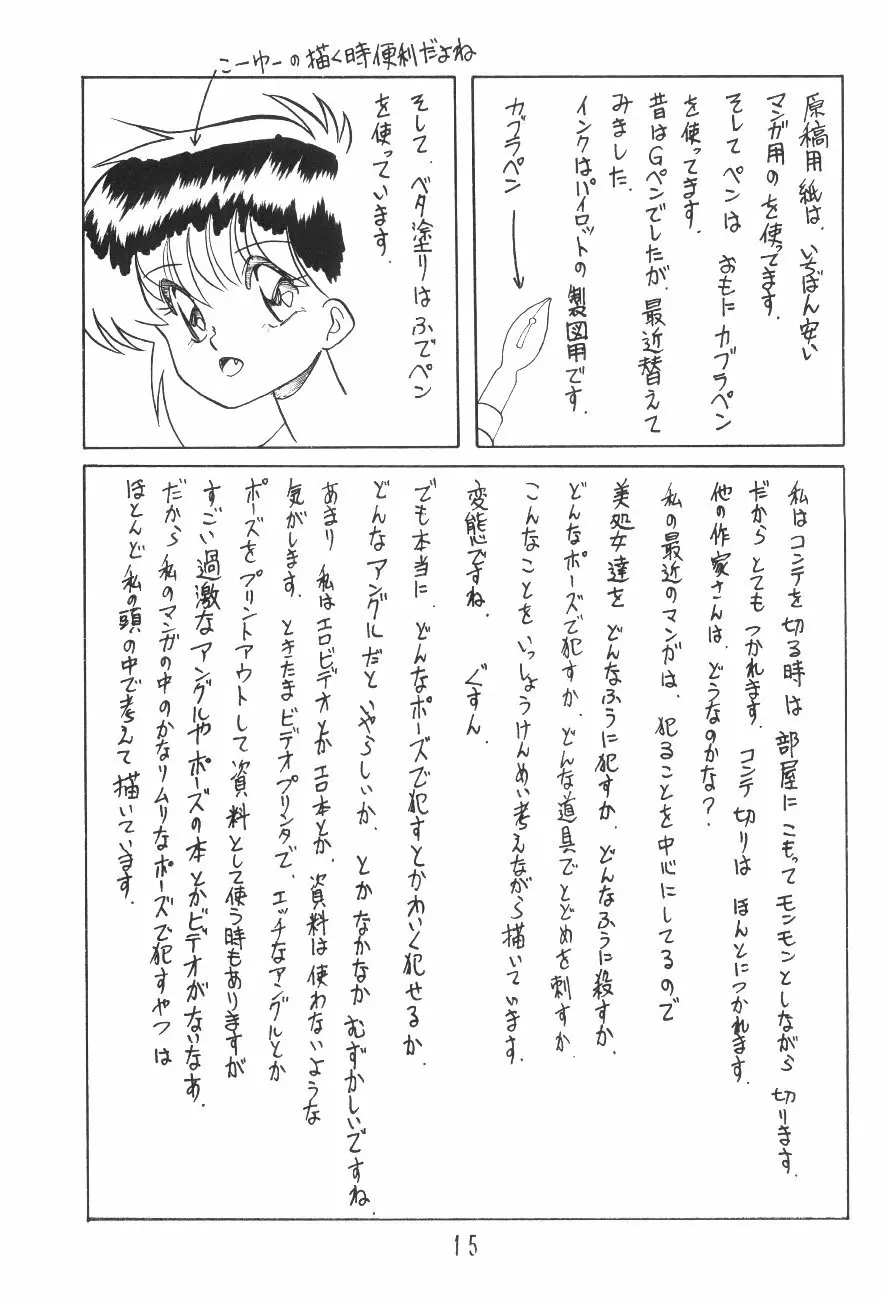 こーゆーの描く時便利だよね
原稿用紙は、いちばん安い
マンガ用のを使ってます.
そしてペンは おもにカブラペン
を使ってます.
昔はGペンでしたが、最近替えて
みました.
インクはパイロットの製図用です.
カブラペン
そして、ベタ塗りはふでペン
を使っています.
私はコンテを切る時は 部屋に こもって モンモンとしながら 切ります.
だから とても つかれます. コンテ切りは ほんとにつかれます.
他の作家さんは、どうなのかな?
私の最近のマンガは、犯ることを中心にしてるので
美処女達を どんなふうに犯すか. どんなふうに殺すか.
どんなポーズで犯すか. どんな道具でとどめを刺すか.
こんなことを いっしょうけんめい考えながら描いています.
変態ですね. ぐすん.
でも本当に、どんなポーズで犯すとかわいく犯せるか.
どんなアングルだと いやらしいか. とか なかなか むずかしいですね.
あまり 私はエロビデオとか エロ本とか、資料は使わないような
気がします. ときたま ビデオプリンタで、エッチなアングルとか
ポーズをプリントアウトして 資料として使う時もありますが
すごい過激なアングルやポーズの本とかビデオがないなあ.
だから 私のマンガの中のかなりムリなポーズで犯すやつは
ほとんど私の頭の中で考えて描いています.
15